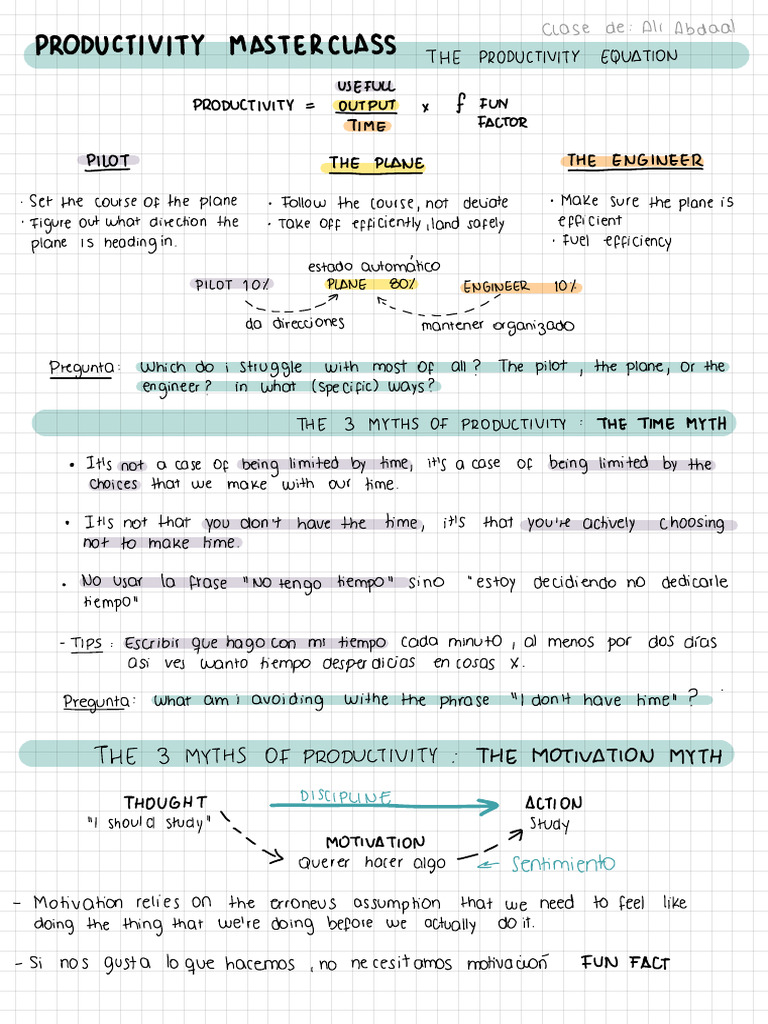 Clase de: Ali Abdaal
PRODUCTIVITY MASTERCLASS THE PRODUCTIVITY EQUATION
USEFULL
PRODUCTIVITY = OUTPUT x f FUN
TIME FACTOR
PILOT
· Set the course of the plane
· Figure out what direction the
plane is heading in.
THE PLANE
· Follow the course, not deviate
· Take off efficiently, land safely
THE ENGINEER
· Make sure the plane is
efficient
· Fuel efficiency
estado automático
PILOT 10% PLANE 80% ENGINEER 10%
da direcciones mantener organizado
Pregunta: Which do i struggle with most of all? The pilot, the plane, or the
engineer? in what (specific) ways?
THE 3 MYTHS OF PRODUCTIVITY: THE TIME MYTH
• It's not a case of being limited by time, it's a case of being limited by the
choices that we make with our time.
• It's not that you don't have the time, it's that you're actively choosing
not to make time.
• No usar la frase "No tengo tiempo" sino "estoy decidiendo no dedicarle
tiempo"
- TIPS: Escribir que hago con mi tiempo cada minuto, al menos por dos días
asi ves wanto tiempo desperdicias en cosas x.
Pregunta: what am i avoiding withe the phrase "I don't have time"?
THE 3 MYTHS OF PRODUCTIVITY: THE MOTIVATION MYTH
THOUGHT DISCIPLINE ACTION
"I should study" Study
MOTIVATION
Querer hacer algo Sentimiento
- Motivation relies on the erroneus assumption that we need to feel like
doing the thing that we're doing before we actually do it.
- Si nos gusta lo que hacemos, no necesitamos motivación FUN FACT